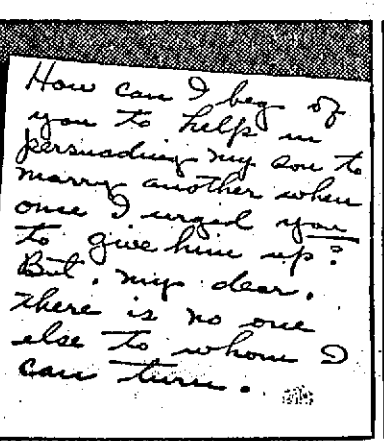 How can I beg of
you to help in
persuading my son to
marry another when
once I urged you
to give him up?
But, my dear,
there is no one
else to whom I
can turn.